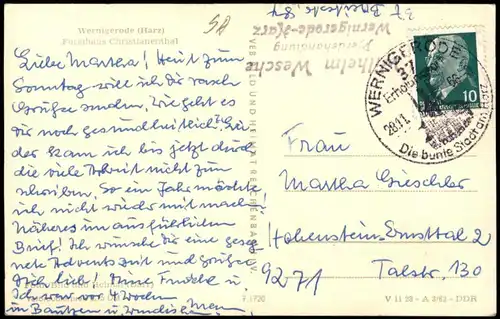 Wernigerode (Harz)
Forsthaus Christianental
Liebe Martha! Heut zum
Sonntag will ich dir rasch
Grüße senden. Wie geht es
dir noch gesundheitlich? Lei-
der kam ich bis jetzt durch
die viele Arbeit nicht zum
schreiben. So ein Jahr möchte
ich nicht wieder mit machen.
Näheres im ausführlichen
Brief! Ich wünsche dir eine geseg-
nete Adventszeit und grüße
Dich lieb!
Ich war vor 4 Wochen
in Bautzen u.
VEB BILD UND HEIMAT REICHENBACH I. V.
Wilhelm Wesche
Wernigerode-Harz
WERNIGERODE
37
28.11.
Die bunte Stadt am Harz
10
Frau
Martha Gieschler
Hohenstein-Ernstthal 2
9271 Talstr. 130
V 11 28 - A 2/63 - DDR